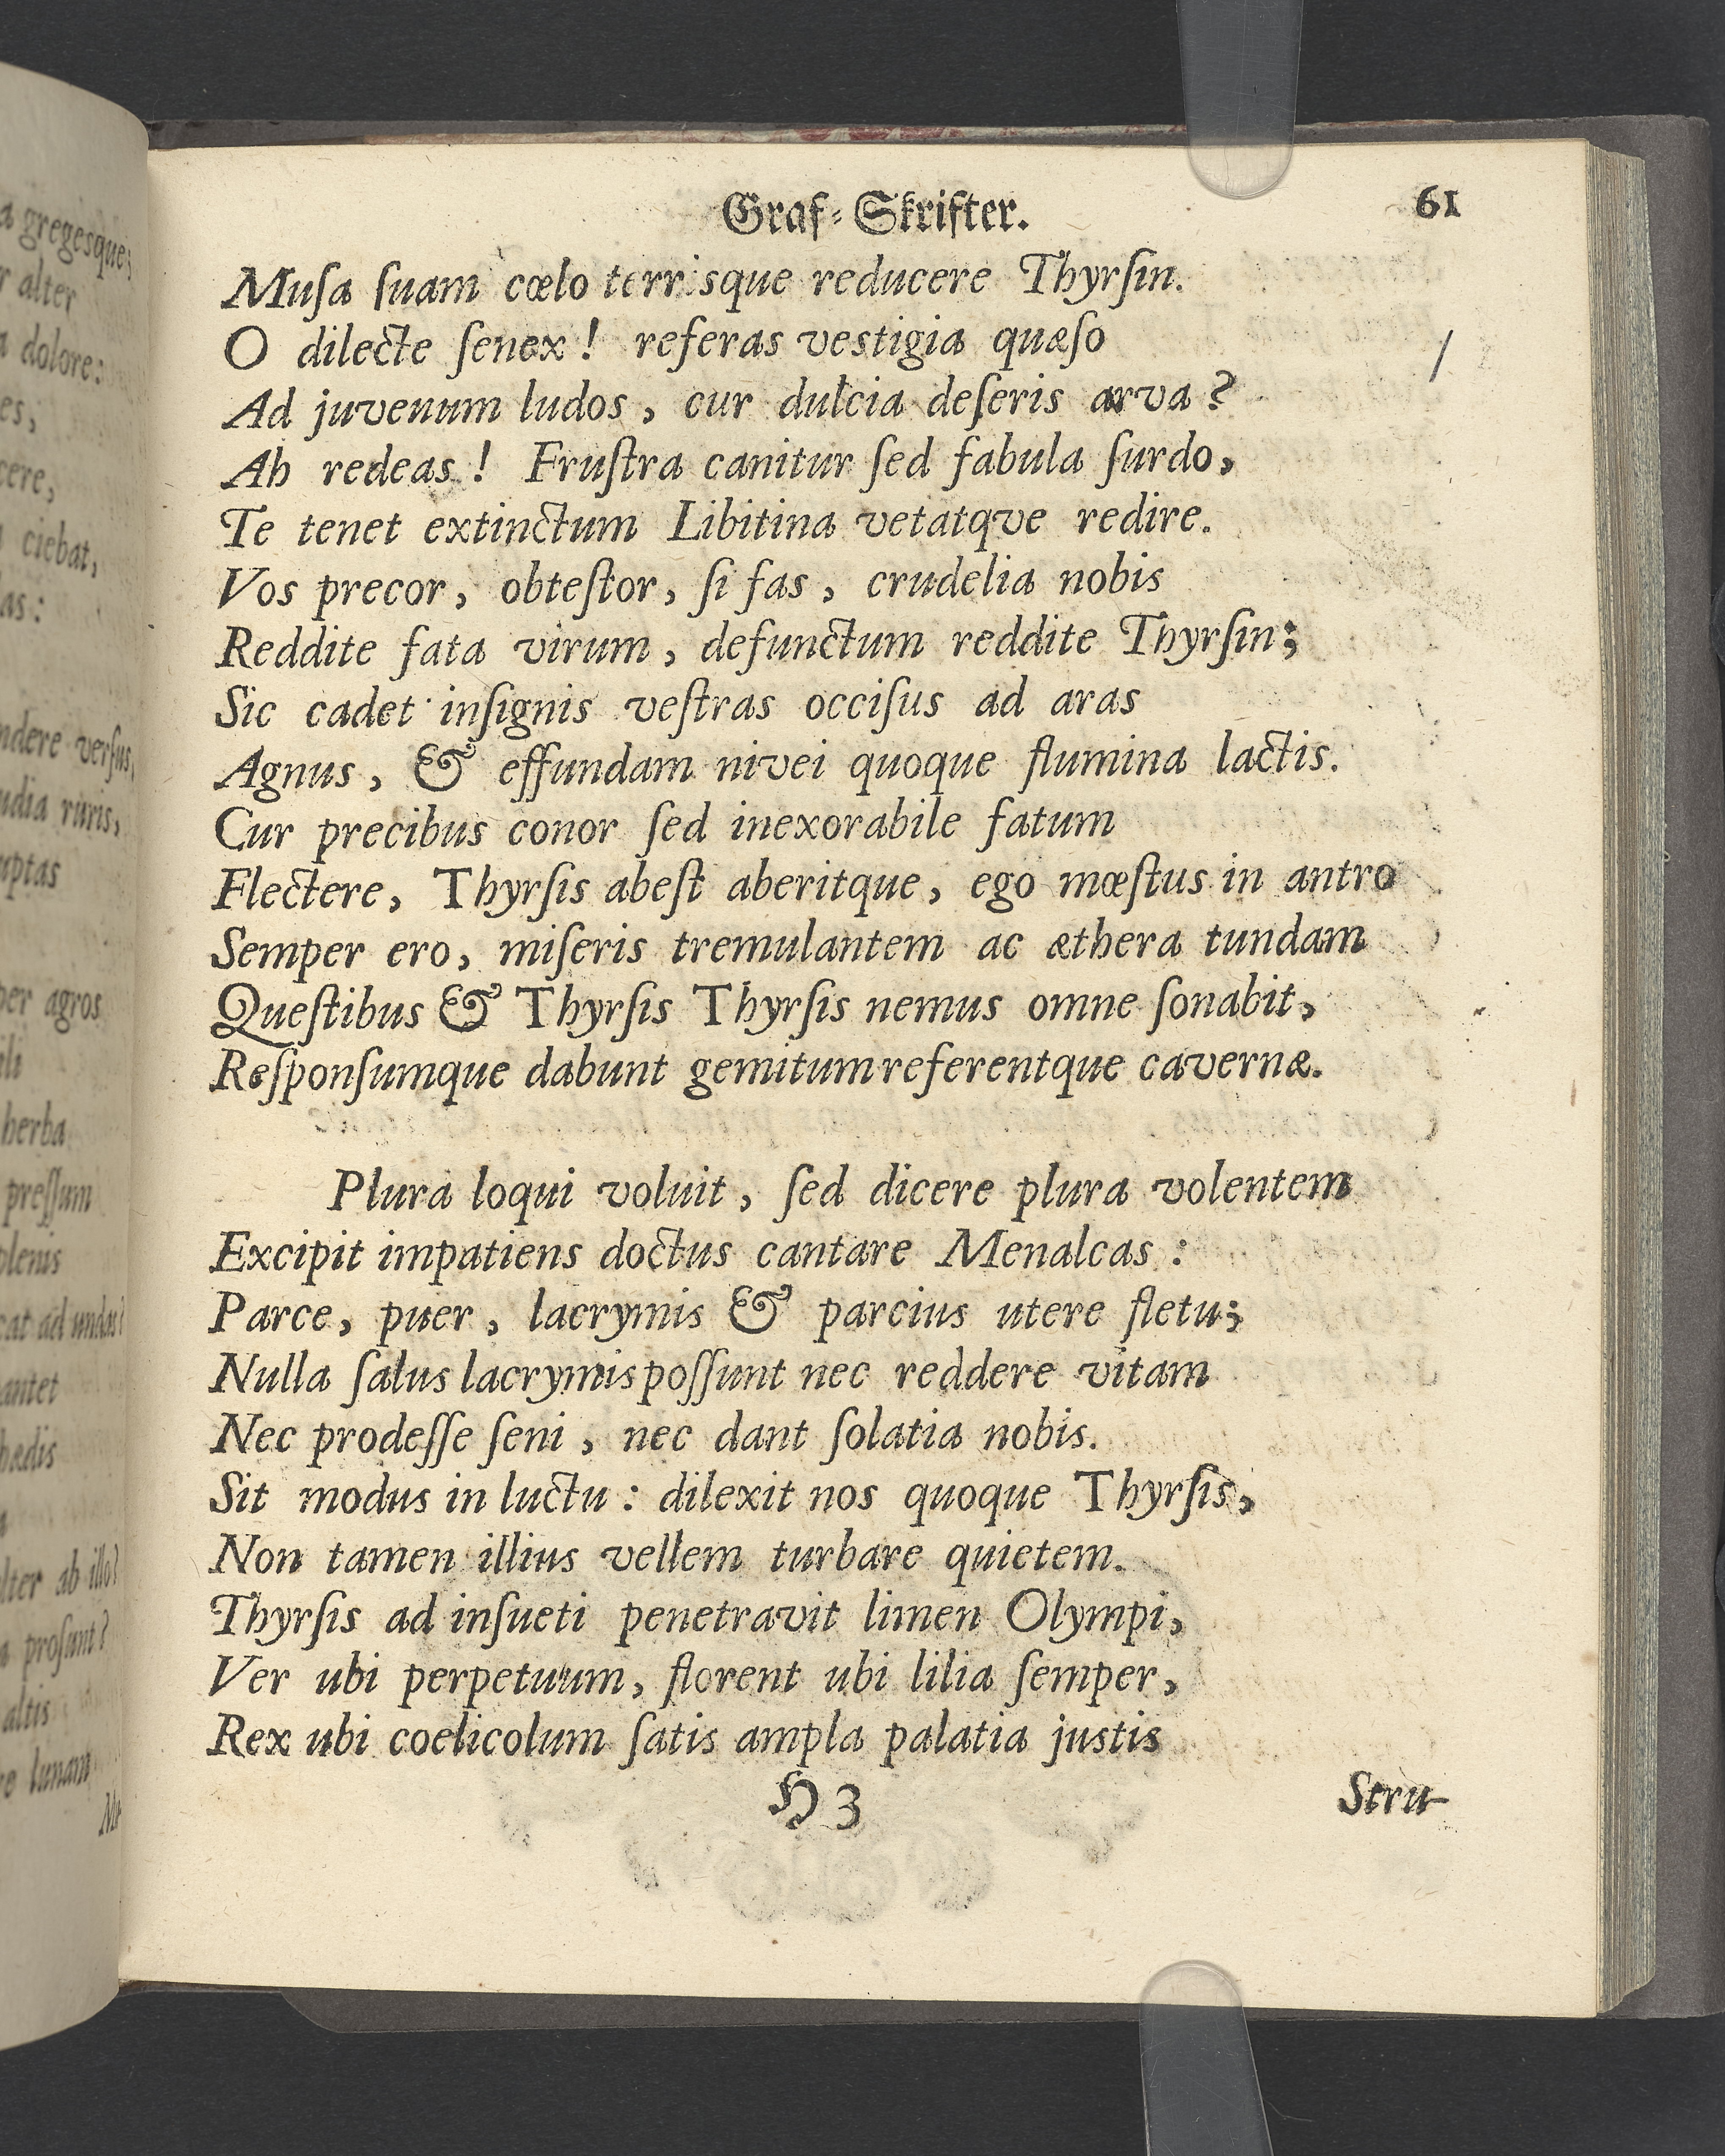 a gregesque;
r alter
a dolore:
es,
cere,
ciebat,
as:
ndere versus,
udia ruris,
uptas
per agros
ili
herba
pressum
plenis
cat ad undas?
antet
hædis
a
lter ab illo?
a prosunt?
altis
re lunam
Me
Graf-Skrifter.
61
Muſa ſuam cœlo terrisque reducere Thyrſin.
O dilecte ſenex! referas vestigia quæſo
Ad juvenum ludos, cur dulcia deſeris arva?
Ah redeas! Fruſtra canitur ſed fabula ſurdo,
Te tenet extinctum Libitina vetatqve redire.
Vos precor, obteſtor, ſi fas, crudelia nobis
Reddite fata virum, defunctum reddite Thyrſin;
Sic cadet inſignis veſtras occiſus ad aras
Agnus, & effundam nivei quoque flumina lactis.
Cur precibus conor ſed inexorabile fatum
Flectere, Thyrſis abeſt aberitque, ego mœſtus in antro
Semper ero, miſeris tremulantem ac æthera tundam
Queſtibus & Thyrſis Thyrſis nemus omne ſonabit,
Reſponſumque dabunt gemitum referentque cavernæ.
Plura loqui voluit, ſed dicere plura volentem
Excipit impatiens doctus cantare Menalcas:
Parce, puer, lacrymis & parcius utere fletu;
Nulla ſalus lacrymis poſſunt nec reddere vitam
Nec prodeſſe ſeni, nec dant ſolatia nobis.
Sit modus in luctu: dilexit nos quoque Thyrſis,
Non tamen illius vellem turbare quietem.
Thyrſis ad inſueti penetravit limen Olympi,
Ver ubi perpetuum, florent ubi lilia ſemper,
Rex ubi coelicolum ſatis ampla palatia justis
H 3
Stru-